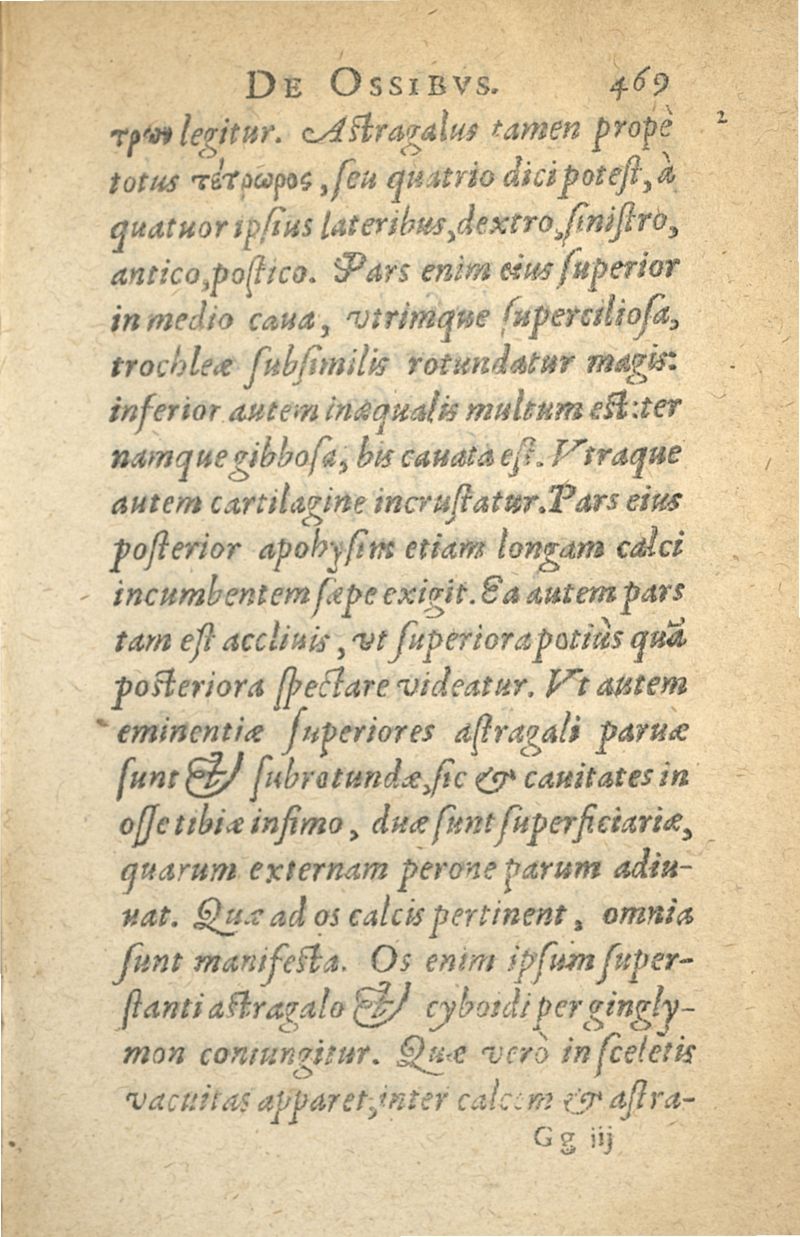 DE OSSIBVS. 469
τρων legitur. Astragalus tamen propè 2
totus τέτρωρος, seu quatrio dici potest, à
quatuor ipsius lateribus, dextro, sinistro,
antico, postico. Pars enim eius superior
in medio caua, vtrimque superciliosa,
trochleæ subsimilis rotundatur magis:
inferior autem inæqualis multum est: ter
namque gibbosa, bis cauata est. Vtraque
autem cartilagine incrustatur. Pars eius
posterior apohysim etiam longam calci
incumbentem sæpe exigit. Ea autem pars
tam est accliuis, vt superiora potiùs quã
posteriora spectare videatur. Vt autem
eminentiæ superiores astragali paruæ
sunt & subrotundæ, sic & cauitates in
osse tibiæ infimo, duæ sunt superficiariæ,
quarum externam perone parum adiu-
uat. Quæ ad os calcis pertinent, omnia
sunt manifesta. Os enim ipsum super-
stanti astragalo & cyboidi per gingly-
mon coniungitur. Quæ verò in sceletis
vacuitas apparet, inter calcem & astra-
Gg iij